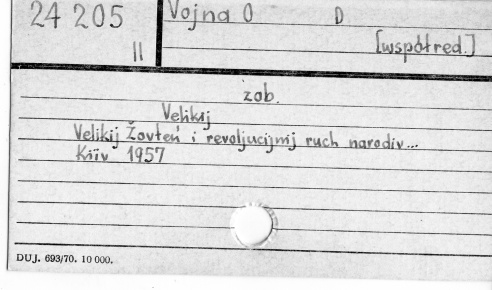 24 205
II
Vojna O D
[współred.]
zob.
Velikij
Velikij Žovteń i revoljucijnij ruch narodiv...
Kiïv 1957
DUJ. 693/70. 10 000.